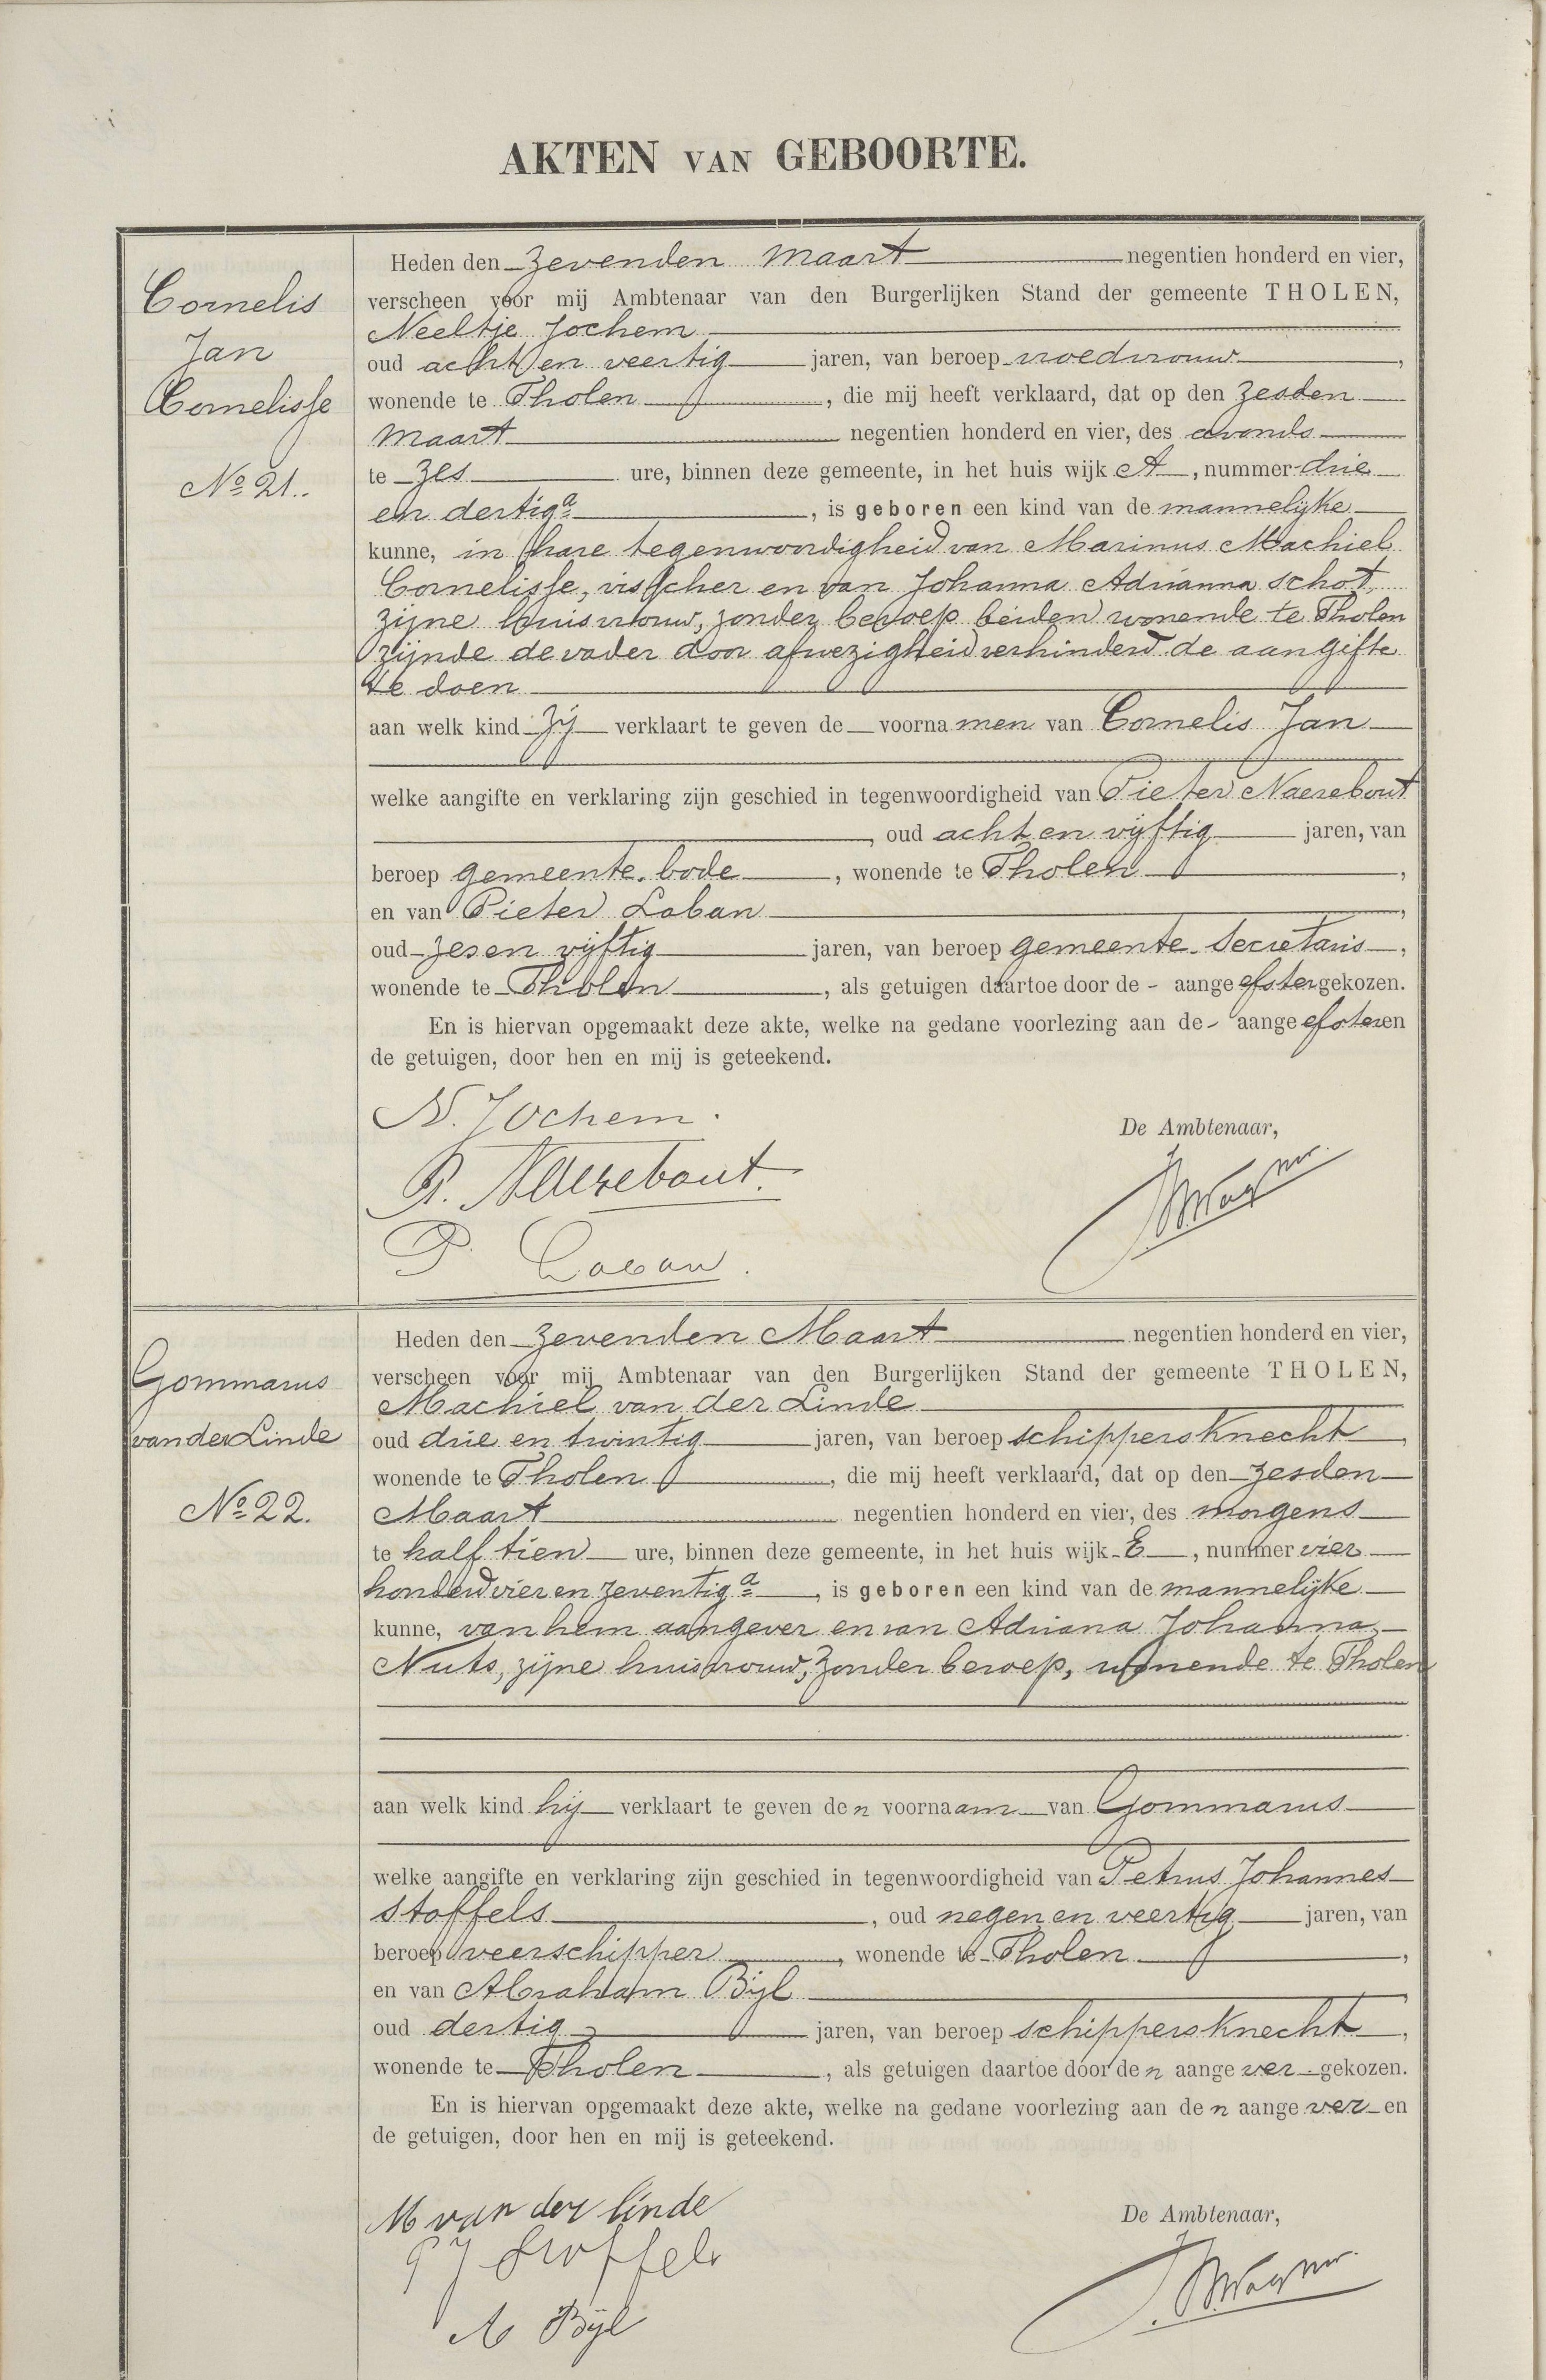 AKTEN VAN GEBOORTE.
Cornelis
Jan
Cornelisse
No 21.
Heden den zevenden maart negentien honderd en vier,
verscheen voor mij Ambtenaar van den Burgerlijken Stand der gemeente THOLEN,
Neeltje Jochem
oud acht en veertig jaren, van beroep vroedvrouw,
wonende te Tholen, die mij heeft verklaard, dat op den zesden
maart negentien honderd en vier, des avonds
te zes ure, binnen deze gemeente, in het huis wijk A, nummer drie
en dertig a, is geboren een kind van de mannelijke
kunne, in hare tegenwoordigheid van Marinus Machiel
Cornelisse, visscher en van Johanna Adrianna Schot,
zijne huisvrouw, zonder beroep beiden wonende te Tholen
zijnde de vader door afwezigheid verhinderd de aangifte
te doen
aan welk kind zij verklaart te geven de voornamen van Cornelis Jan
welke aangifte en verklaring zijn geschied in tegenwoordigheid van Pieter Naerebout
, oud acht en vijftig jaren, van
beroep gemeente-bode, wonende te Tholen,
en van Pieter Laban,
oud zes en vijftig jaren, van beroep gemeente-Secretaris,
wonende te Tholen, als getuigen daartoe door de - aangeefster gekozen.
En is hiervan opgemaakt deze akte, welke na gedane voorlezing aan de - aangeefster en
de getuigen, door hen en mij is geteekend.
N. Jochem.
De Ambtenaar,
P. Naerebout.
P. Laban.
Gommarus
van der Linde
No 22.
Heden den zevenden Maart negentien honderd en vier,
verscheen voor mij Ambtenaar van den Burgerlijken Stand der gemeente THOLEN,
Machiel van der Linde
oud drie en twintig jaren, van beroep schippersknecht,
wonende te Tholen, die mij heeft verklaard, dat op den zesden
Maart negentien honderd en vier, des morgens
te half tien ure, binnen deze gemeente, in het huis wijk E, nummer vier
honderd vier en zeventig a, is geboren een kind van de mannelijke
kunne, van hem aangever en van Adriana Johanna
Nuts, zijne huisvrouw, zonder beroep, wonende te Tholen
aan welk kind hij verklaart te geven den voornaam van Gommarus
welke aangifte en verklaring zijn geschied in tegenwoordigheid van Petrus Johannes
Stoffels, oud negen en veertig jaren, van
beroep veerschipper, wonende te Tholen,
en van Abraham Bijl
oud dertig jaren, van beroep schippersknecht,
wonende te Tholen, als getuigen daartoe door den aangever gekozen.
En is hiervan opgemaakt deze akte, welke na gedane voorlezing aan den aangever en
de getuigen, door hen en mij is geteekend.
M van der linde
De Ambtenaar,
P J Stoffels
A Bijl